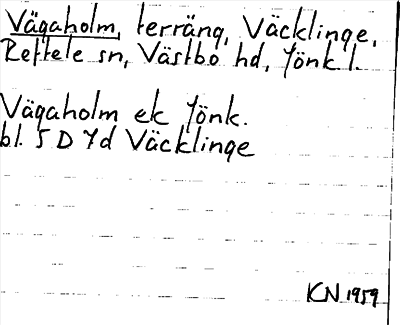 Vägaholm, terräng, Väcklinge,
Reftele sn, Västbo hd, Jönk l.
Vägaholm ek Jönk.
bl. 5 D 7d Väcklinge
KN 1959